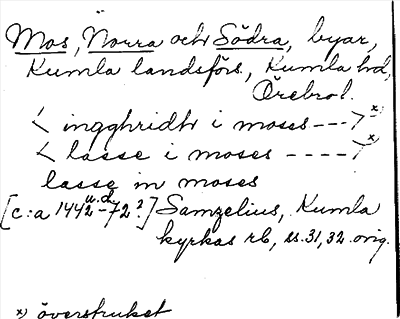 Mos, Norra och Södra, byar,
Kumla landsförs., Kumla hd,
Örebrol.
< ingghridh i moses --- > x)
< lasse i moses ---- > x)
lasse in moses
[c:a 1442 u.d. -72?] Samzelius, Kumla
kyrkas rb, ss. 31, 32. orig.
x) överstruket